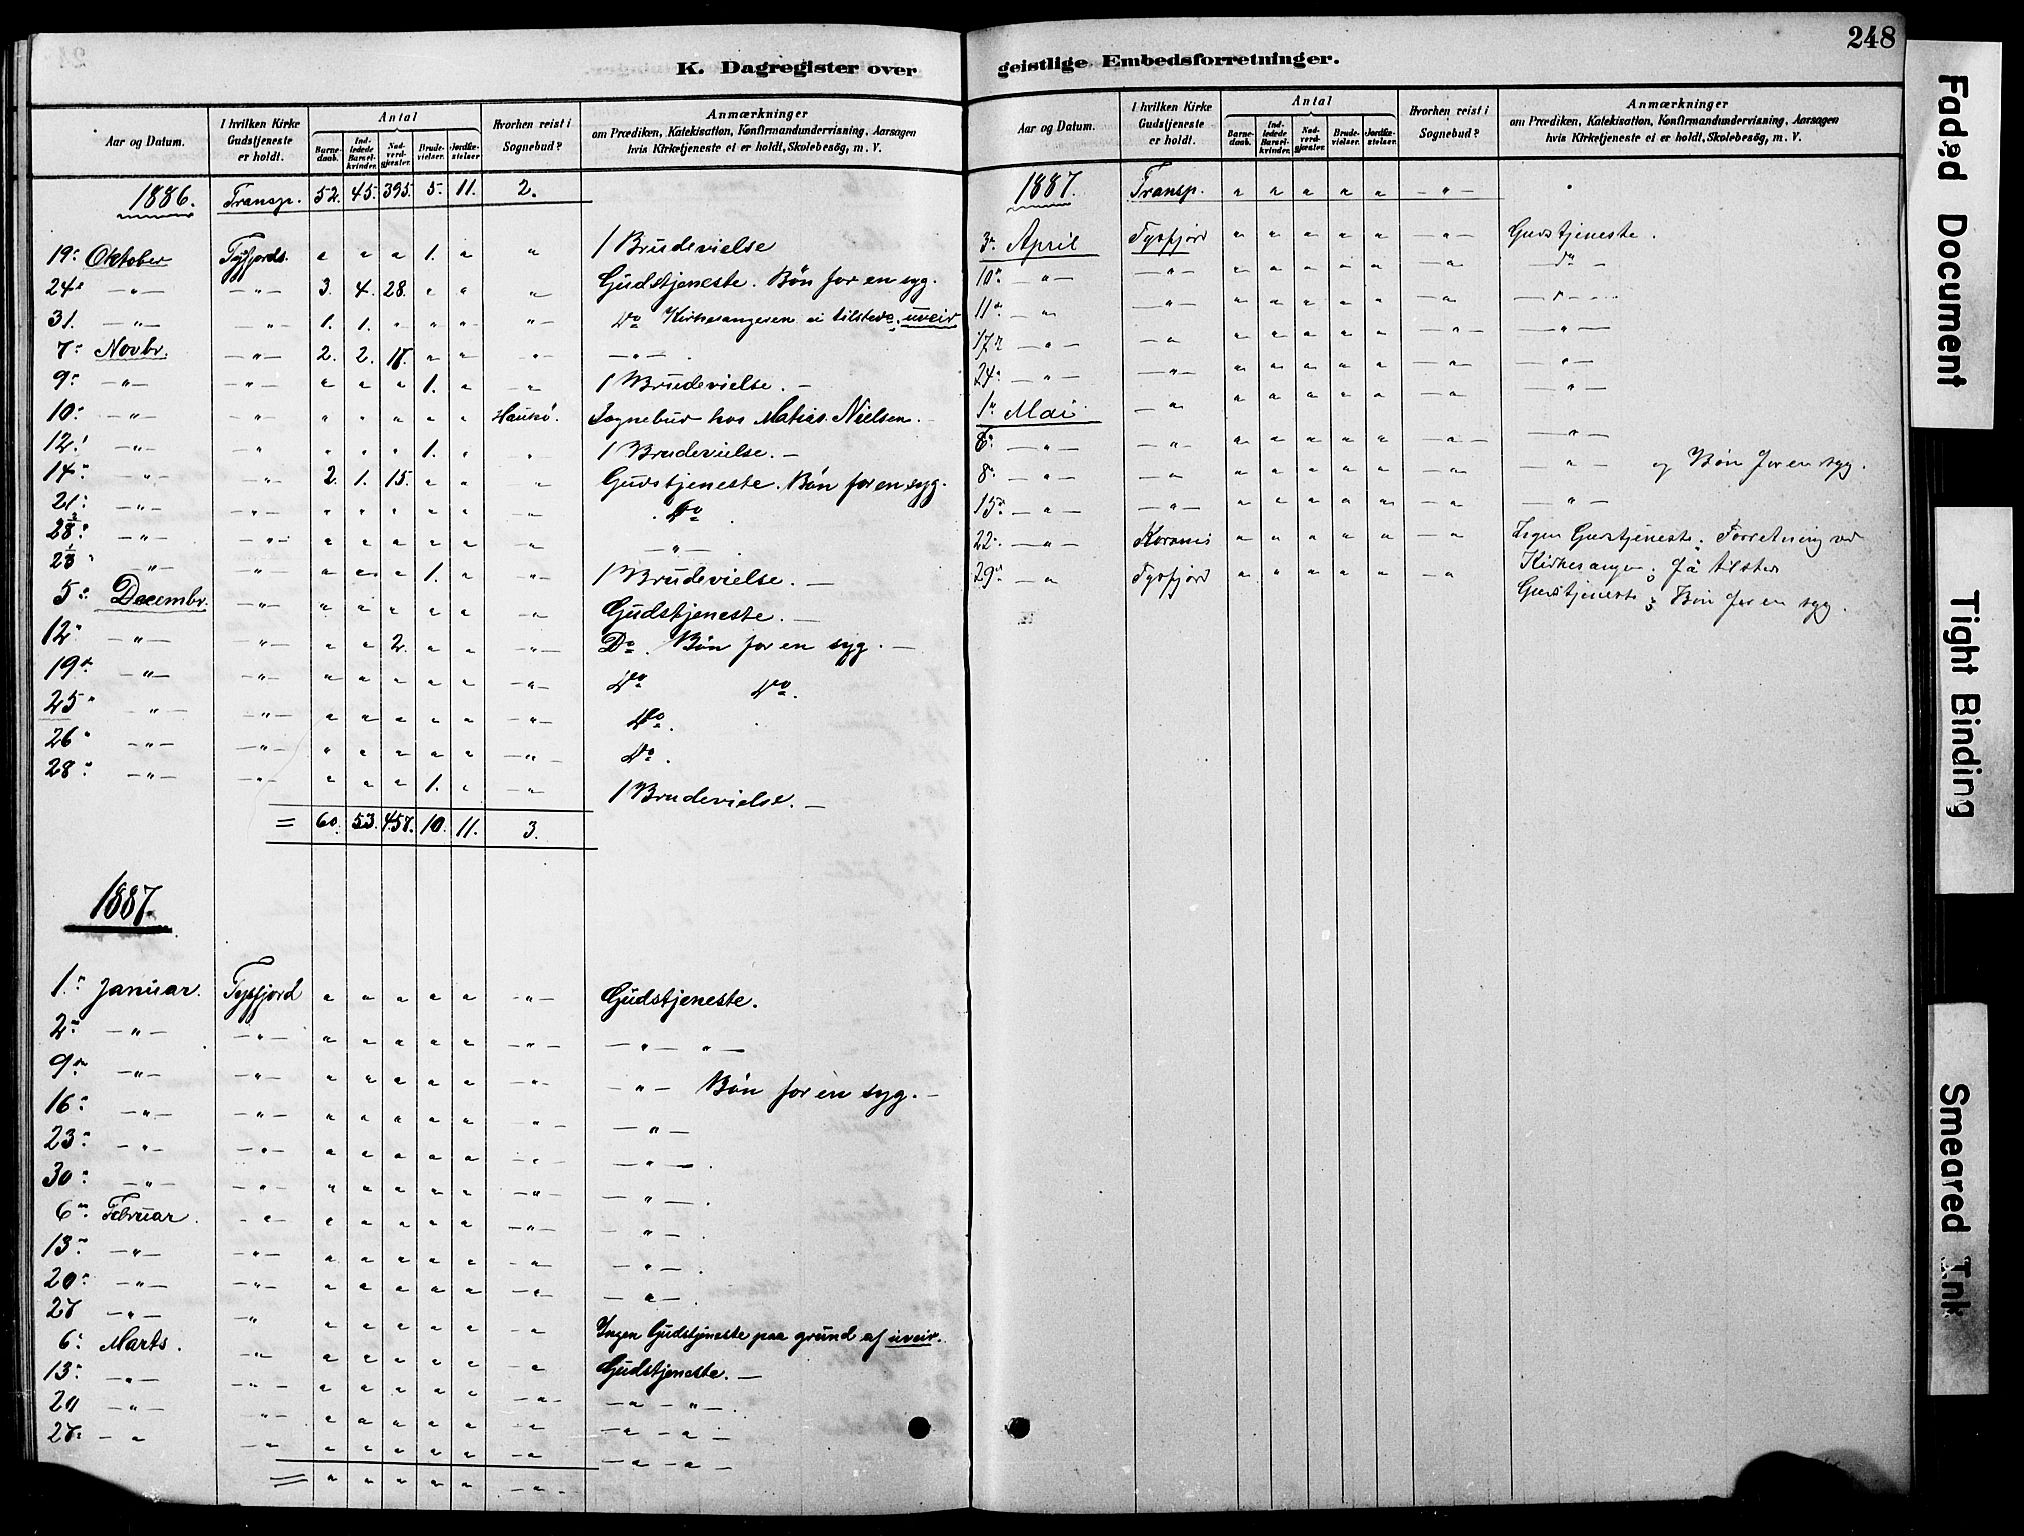 248
K. Dagregister over
Aar og Datum.
I hvilken Kirke Gudstjeneste er holdt.
Antal
Barne-daab.
Ind-ledede Barsel-kvinder.
Nad-verd-gjester.
Brude-vielser.
Jordfæ-stelser
Hvorhen reist i Sognebud?
Anmærkninger
om Prædiken, Katekisation, Konfirmandundervisning, Aarsagen
hvis Kirketjeneste ei er holdt, Skolebesög, m. V.
1886. Transp. 52. 45. 395. 5. 11. 2.
19: Oktober Tysfjords. " " " 1. " " 1 Brudevielse
24: —"— —"— 3. 4. 28. " " " Gudstjeneste. Bøn for en syg.
31. —"— —"— 1. 1. " " " —"— Do Kirkesangeren ei tilstede, uveir
7: Novbr. —"— 2. 2. 18. " " —"— —"—.
9: —"— —"— " " " 1. " —"— 1 Brudevielse. —
10: —"— " " " " " " Haukø. Sognebud hos Matias Nielsen. —
12: —"— " " " " 1. " " 1 Brudevielse. —
14: —"— —"— 2. 1. 15. " " " Gudstjeneste. Bøn for en syg.
21: —"— —"— " " " " " —"— Do.
28: —"— —"— " " " " " —"— —"—
—"— —"— " " " 1. " —"— 1 Brudevielse. —
5: Decembr. —"— " " " " " —"— Gudstjeneste. —
12: —"— —"— " " 2. " " —"— Do. Bøn for en syg. —
19: —"— —"— " " " " " —"— Do Do.
25: —"— —"— " " " " " —"— Do.
26: —"— —"— " " " " " —"— Do.
28: —"— —"— " " " 1. " —"— 1 Brudevielse. —
= 60. 53. 458. 10. 11. 3.
1887.
1: Januar. Tysfjord " " " " " —"— Gudstjeneste.
2: —"— —"— " " " " " —"— —"— "—
9: —"— —"— " " " " " —"— —"— Bøn for en syg. —
16: —"— —"— " " " " " —"— —"—
23: —"— —"— " " " " " —"— —"—.
30: —"— —"— " " " " " —"— —"—.
6: Februar. —"— " " " " " —"— —"—.
13: —"— —"— " " " " " —"— —"—.
20: —"— —"— " " " " " —"— —"—.
27 —"— " " " " " " —" Ingen Gudstjeneste paa grund af uveir.
6: Marts. —"— " " " " " —" Gudstjeneste. —
13: —"— —"— " " " " " —"— —"— "—.
20 —"— —"— " " " " " —"— —"— "—
27: —" —" " " " " " —" —"— "—
= " " " " " —"—
geistlige Embedsforretninger.
Aar og Datum.
I hvilken Kirke Gudstjeneste er holdt.
Antal
Barne-daab.
Ind-ledede Barsel-kvinder.
Nad-verd-gjester.
Brude-vielser.
Jordfæ-stelser.
Hvorhen reist i Sognebud?
Anmærkninger
om Prædiken, Katekisation, Konfirmandundervisning, Aarsagen
hvis Kirketjeneste ei er holdt, Skolebesög, m. V.
1887. Transp. " " " " " —"—
3: April Tysfjord " " " " " —"— Gudstjeneste.
10: —"— —"— " " " " " —" —Do—
11: —" —"— " " " " " —" —"—
17: —"— —" " " " " " —"— —"—
24: —"— —"— " " " " " —" —"—
1: Mai —" " " " " " —" —"—
8: —"— —"— " " " " " —"— —"— og Bøn for en syg.
15: —"— —"— " " " " " —" —"—
22: —"— " " " " " —" Ingen Gudstjeneste. Forretning ved
Kirkesanger.
29: —" Tysfjord " " " " " —" Gudstjeneste; Bøn for en syg.
Faded Document
Tight Binding
Smeared Ink